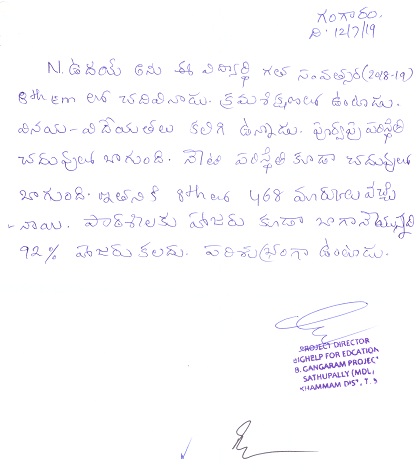 గంగారం.
ది. 12/7/19
N. ఉదయ్ అను ఈ విద్యార్థి గత సంవత్సర(2018-19)
8th EM లో చదివినాడు. క్రమశిక్షణలో ఉంటాడు.
వినయ-విధేయతలు కలిగి ఉన్నాడు. పూర్వపు పరిస్థితి
చదువులో బాగుంది. నేటి పరిస్థితి కూడా చదువులో
బాగుంది. ఇతనికి 8th లో 468 మార్కులు వచ్చి
నాయి. పాఠశాలకు హాజరు కూడా బాగానేయున్నది
92% హాజరు కలదు. పరిశుభ్రంగా ఉంటాడు.
PROJECT DIRECTOR
BIGHELP FOR EDCATION
B. GANGARAM PROJECT
SATHUPALLY (MDL)
KHAMMAM DIST, T.S